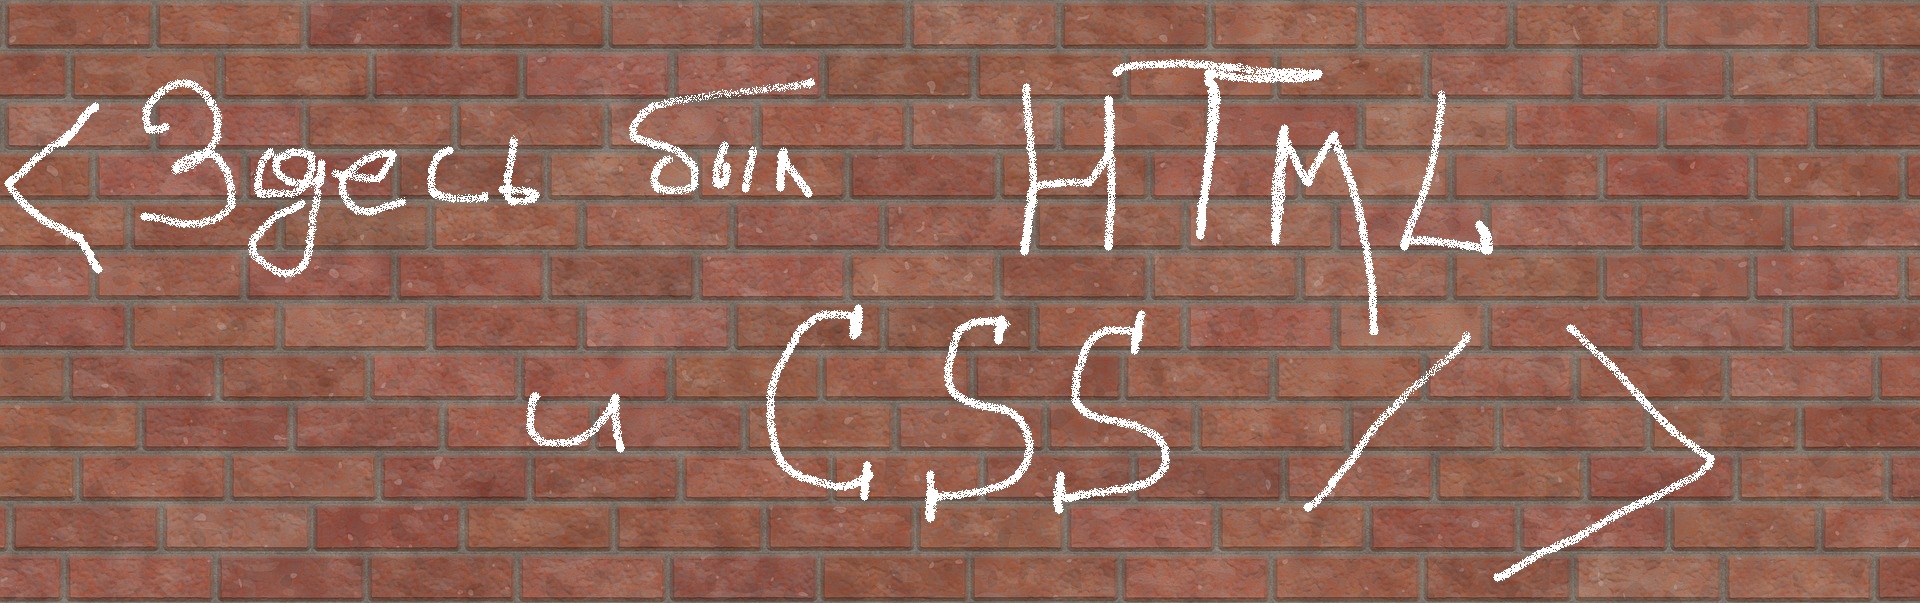 <Здесь был HTML
и CSS />